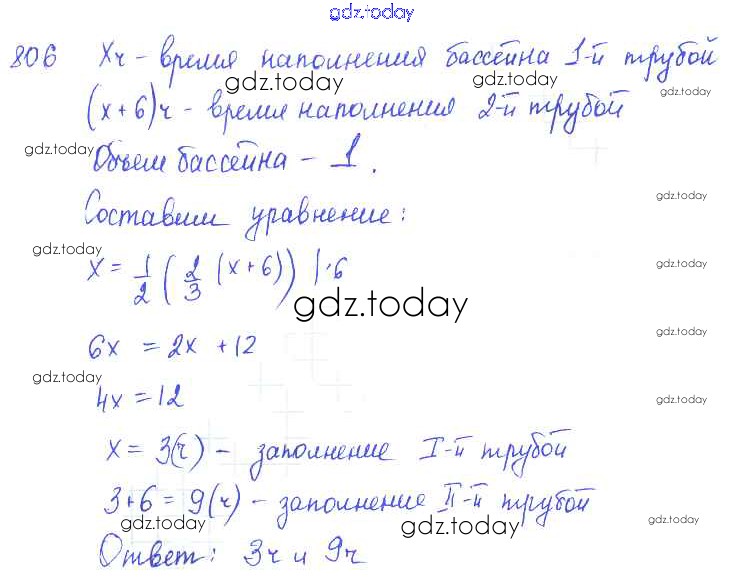 gdz.today
806 Xч - время наполнения бассейна 1-й трубой
gdz.today gdz.today gdz.today
(x+6)ч - время наполнения 2-й трубой
gdz.today
Объем бассейна - 1.
gdz.today
Составим уравнение:
gdz.today gdz.today
x = 1/2 (2/3 (x+6)) |·6
gdz.today
gdz.today
6x = 2x + 12
gdz.today
gdz.today
4x = 12
x = 3(ч) - заполнение I-й трубой
3+6 = 9(ч) - заполнение II-й трубой
gdz.today gdz.today gdz.today
Ответ: 3ч и 9ч